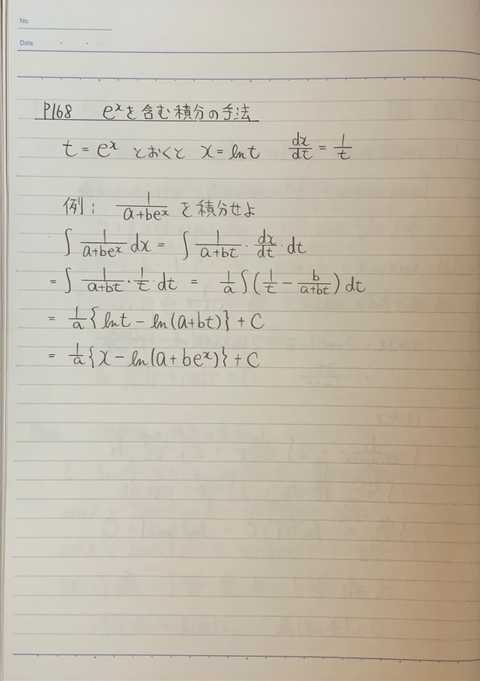 No.
Date
P168 eˣを含む積分の手法
t = eˣ とおくと x = ln t dx/dt = 1/t
例: 1/(a+beˣ) を積分せよ
∫ 1/(a+beˣ) dx = ∫ 1/(a+bt) · dx/dt · dt
= ∫ 1/(a+bt) · 1/t dt = 1/a ∫(1/t − b/(a+bt)) dt
= 1/a {ln t − ln(a+bt)} + C
= 1/a {x − ln(a+beˣ)} + C